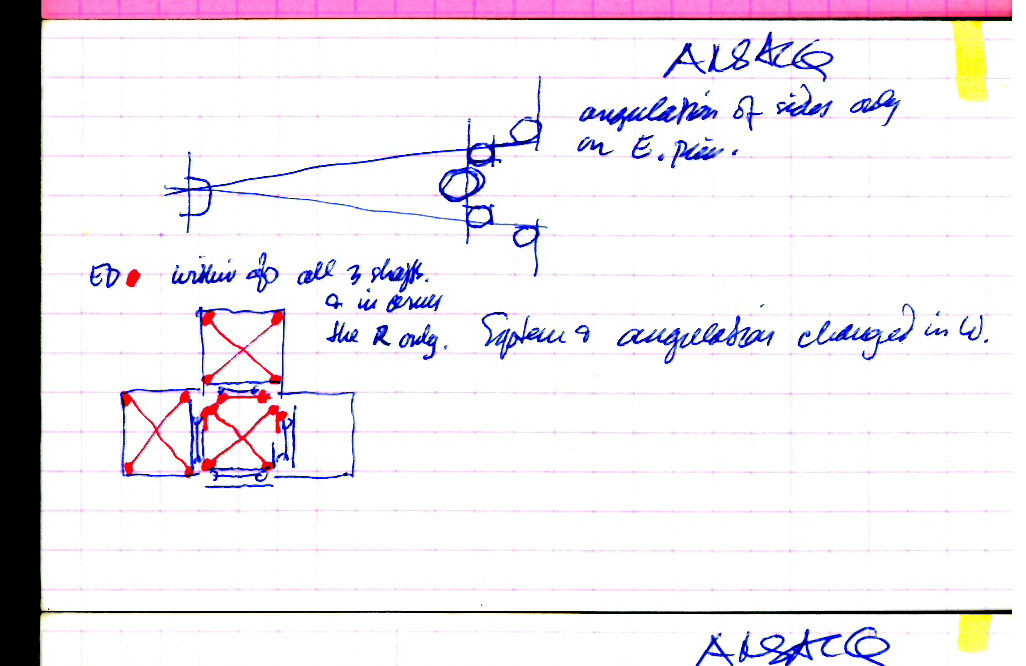 ANSACQ
angulation of sides only
on E. pier.
ED within of all 3 shafts.
& in
the R only. System & angulation changed in W.
ANSACQ